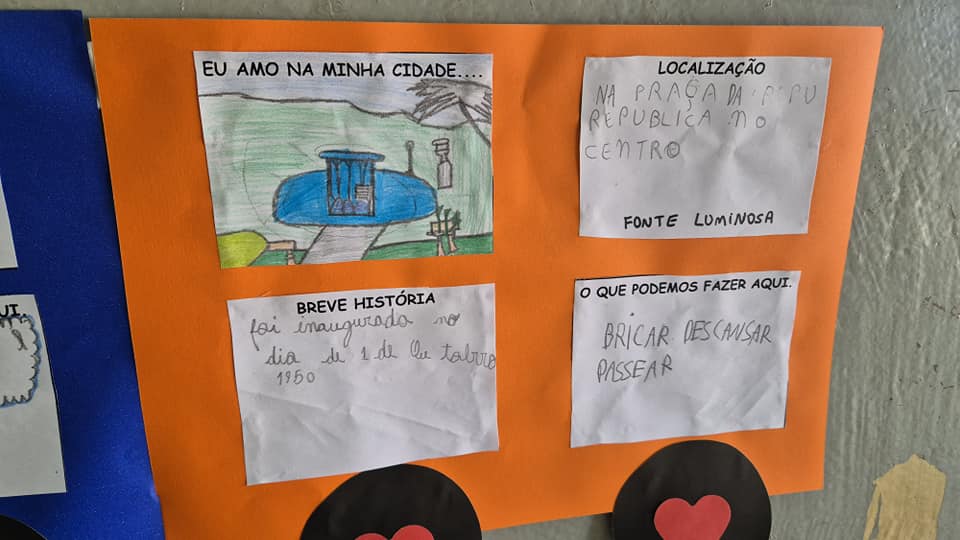 EU AMO NA MINHA CIDADE....
LOCALIZAÇÃO
NA PRAÇA DA
REPUBLICA NO
CENTRO
FONTE LUMINOSA
BREVE HISTÓRIA
foi inaugurada no
dia de 1 de Ou tubro
1950
O QUE PODEMOS FAZER AQUI.
BRICAR DESCANSAR
PASSEAR
UI.